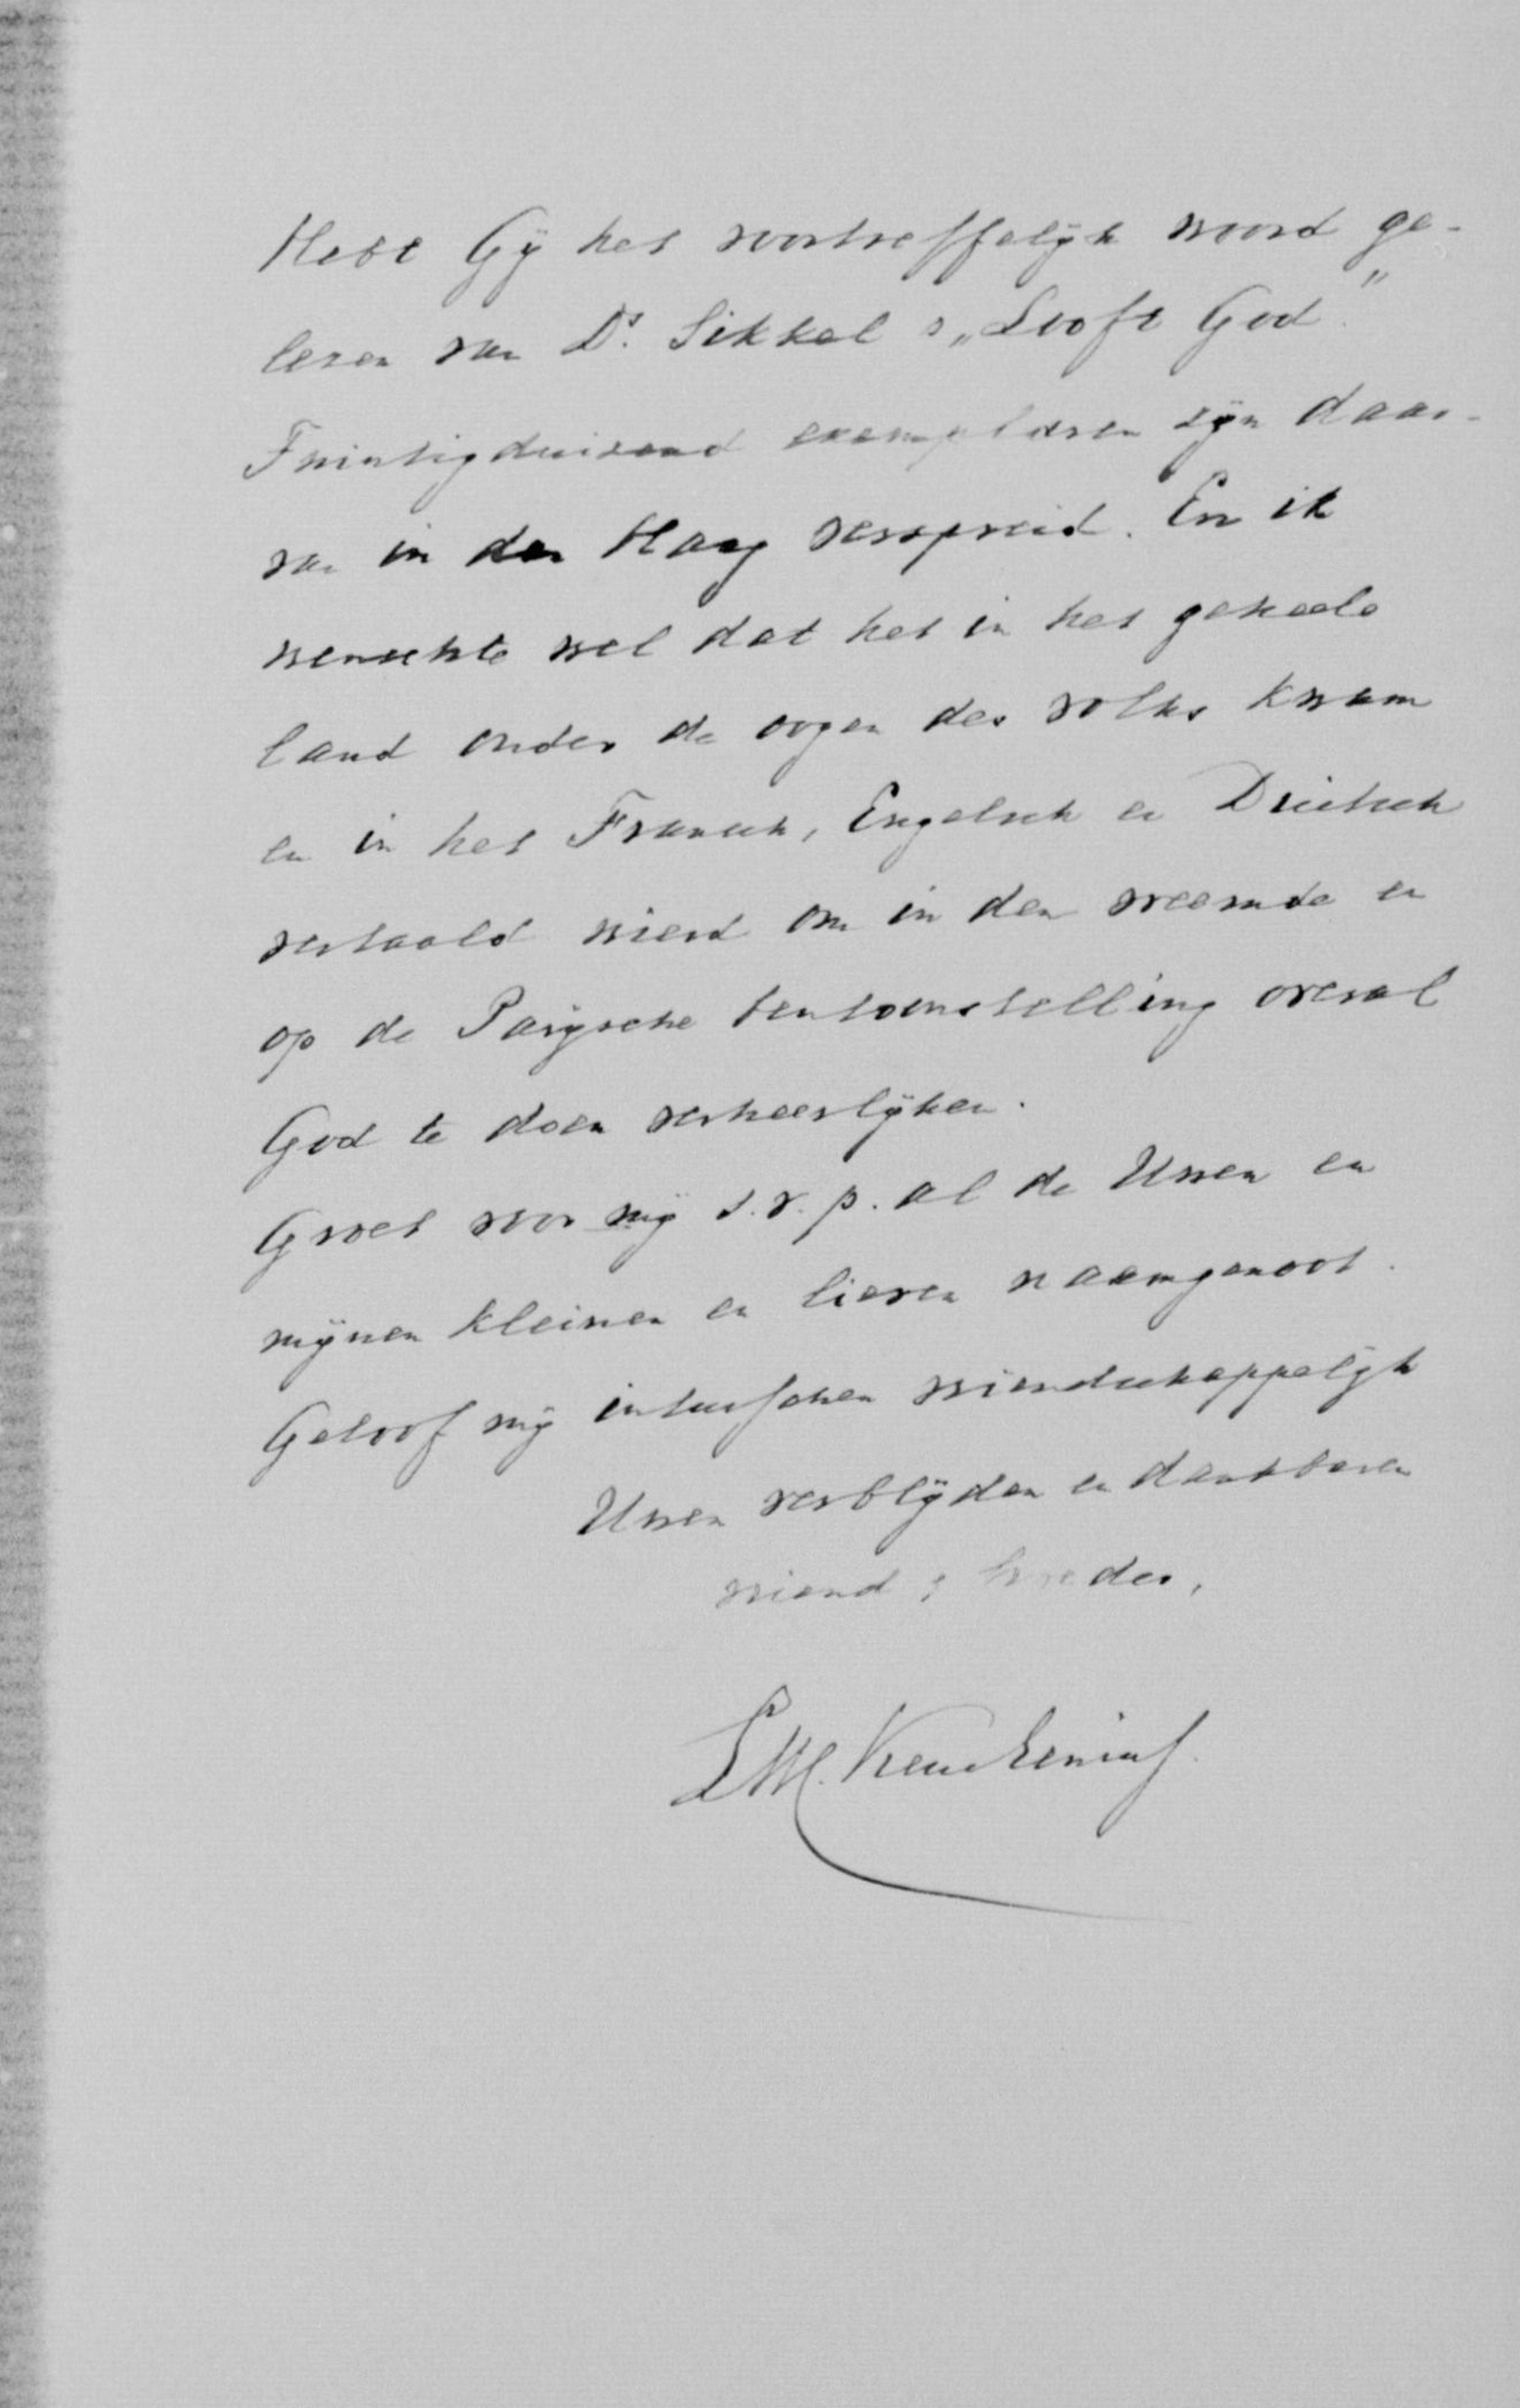 Hebt Gij het voortreffelijk woord ge-
lezen van Ds. Sikkel: „Looft God."
Twintigduizend exemplaren zijn daar-
van in den Haag verspreid. En ik
wenschte wel dat het in het geheele
land onder de oogen des volks kwam
en in het Fransch, Engelsch en Duitsch
vertaald werd om in den vreemde en
op de Parijsche tentoonstelling overal
God te doen verheerlijken.
Groet voor mij s.v.p. al de Uwen en
mijnen kleinen en lieven naamgenoot.
Geloof mij intusschen vriendschappelijk
Uwen verblijden en dankbaren
vriend & broeder,
LWC Keuchenius.